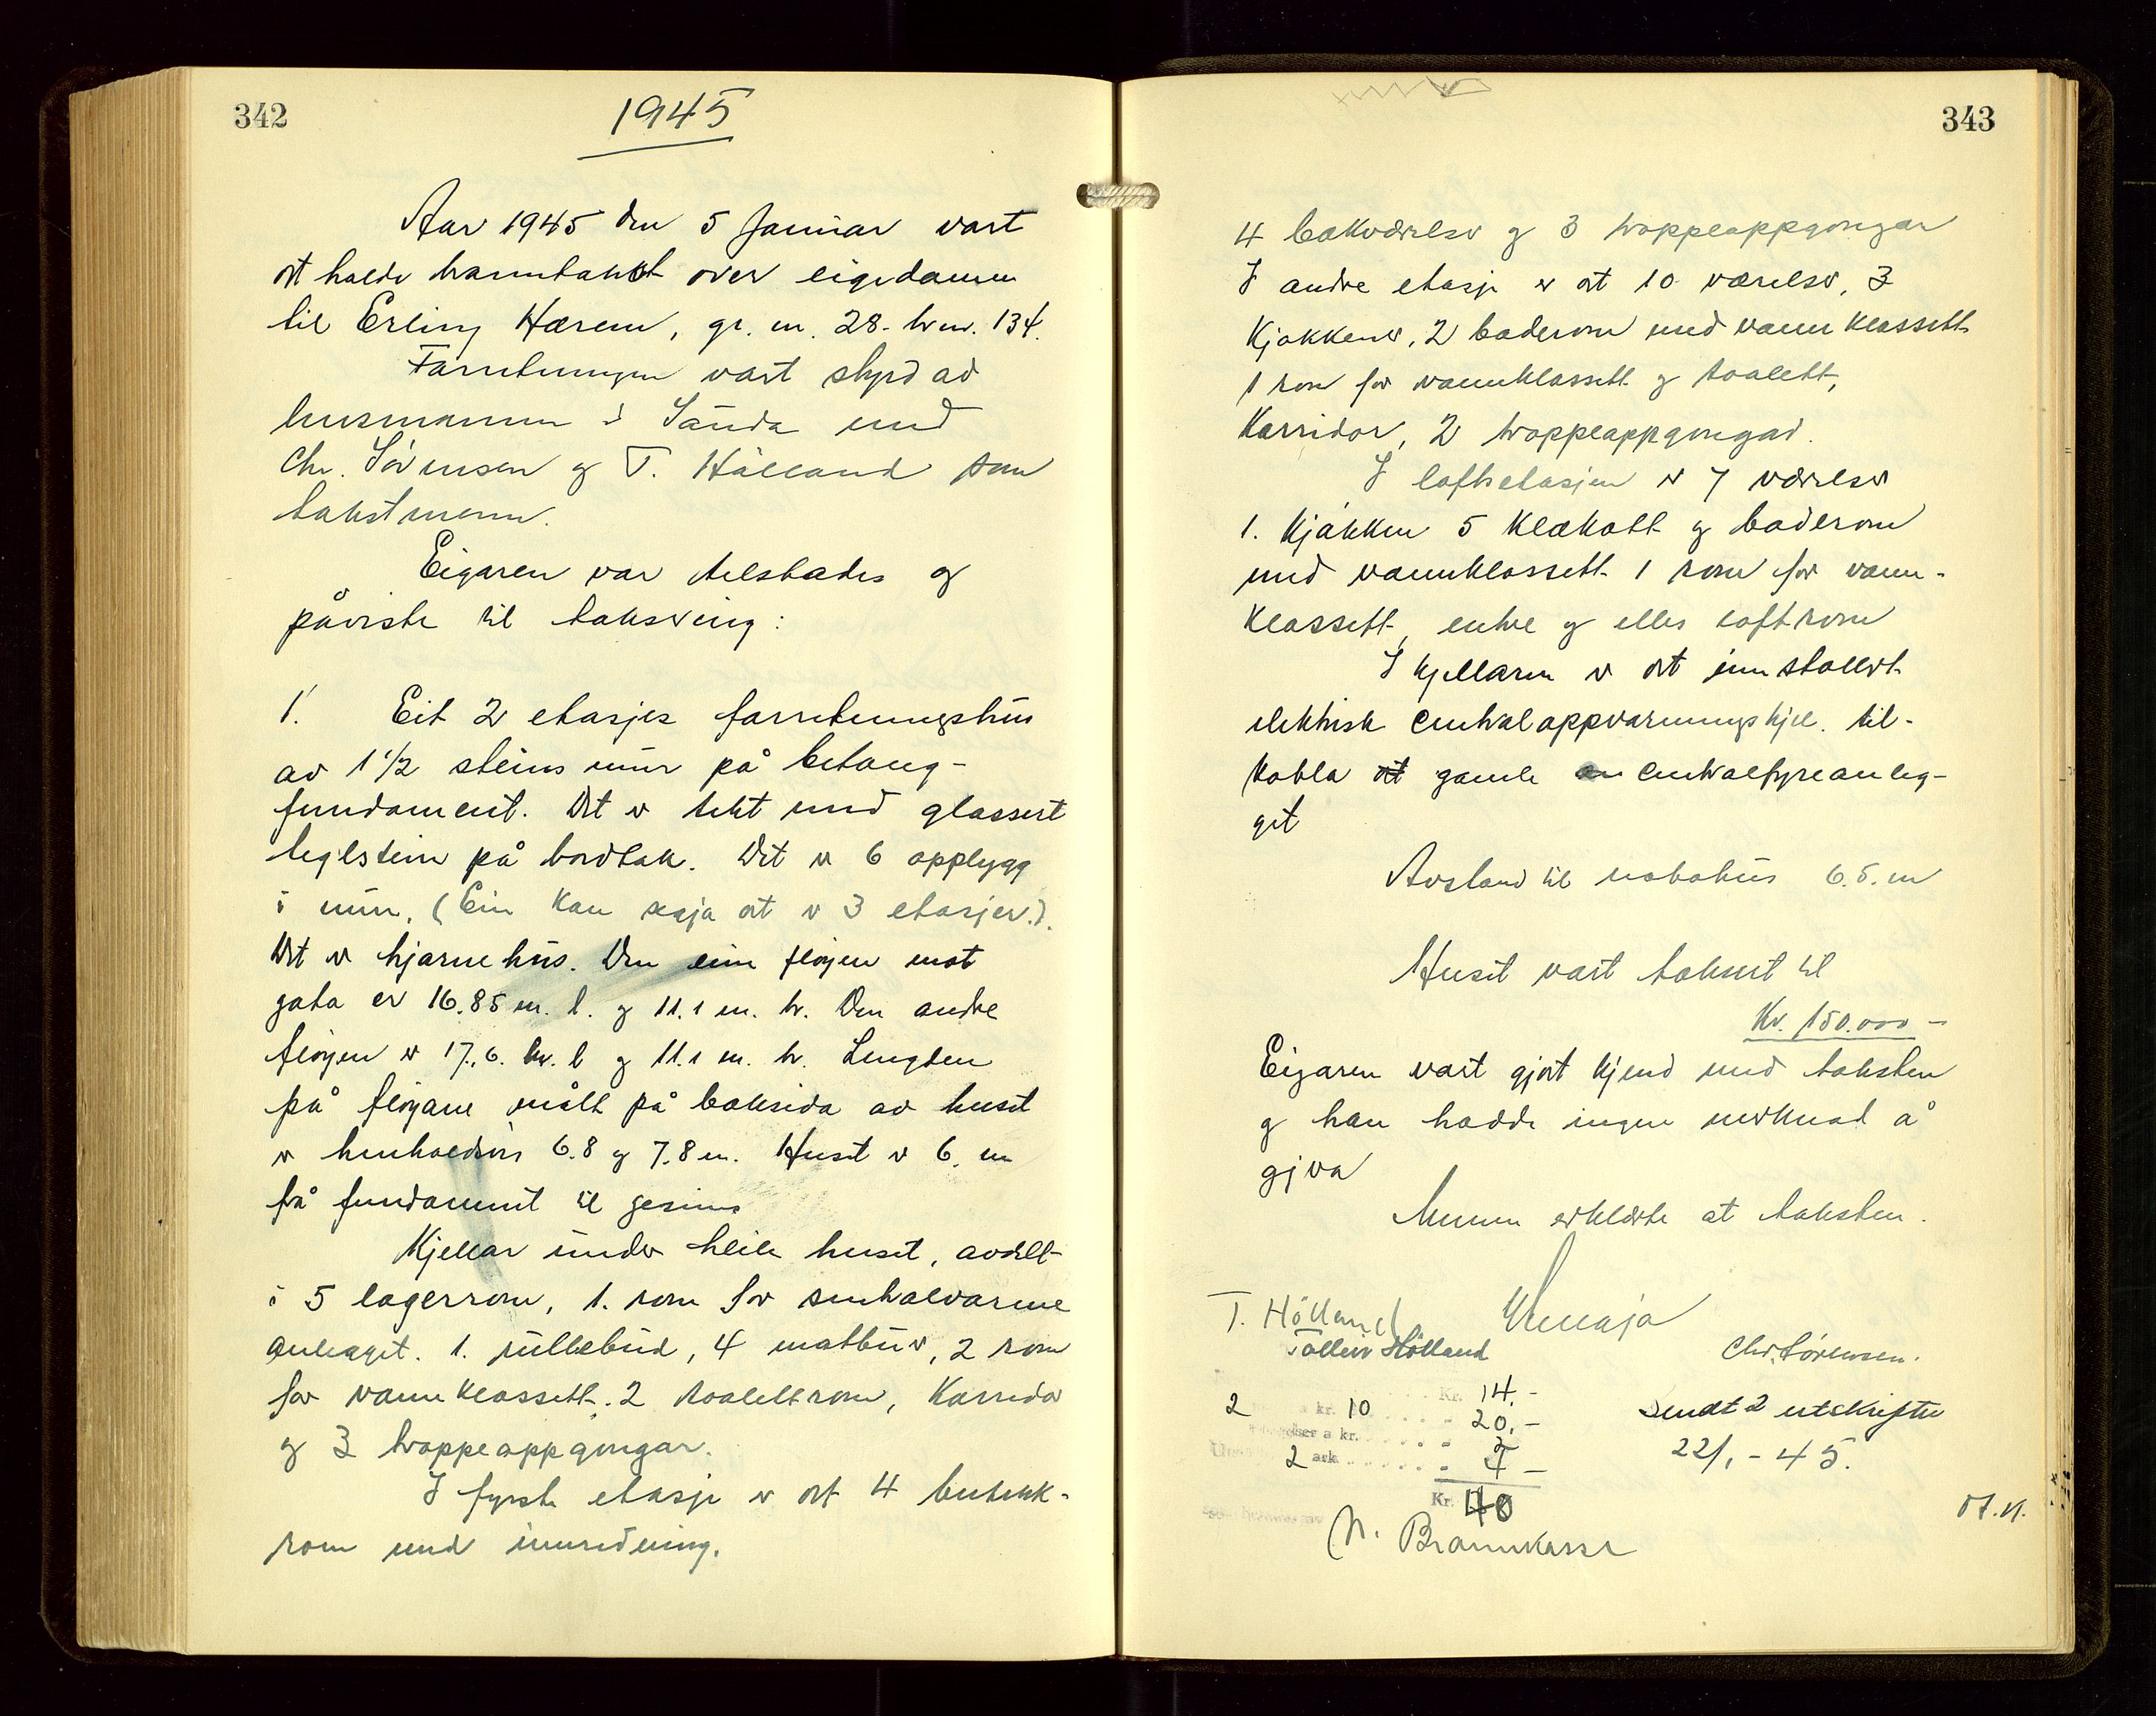 342
1945
Aar 1945 den 5 Januar vart
det halde branntakst over eigedomen
til Erling Hærem, gr. nr. 28. br. nr. 134.
Forretningen vart styrd av
lensmannen i Sauda med
Chr. Sørensen og T. Hålland som
takstmenn.
Eigaren var tilstades og
påviste til taksering:
1. Eit 2 etasjes forretningshus
av 1 1/2 steins mur på betong-
fundament. Det er tekt med glassert
teglstein på bordtak. Det er 6 opplegg
i mur. (Ein kan segja det er 3 etasjer.).
Det er hjørnehus. Den eine fløyen mot
gata er 16.85 m. l. og 11.1 m. br. Den andre
fløyen er 17.6. m. l og 11.1 m. br. Lengden
på fløyane målt på baksida av huset
er henholdsvis 6.8 og 7.8 m. Huset er 6. m
frå fundament til gesims
Kjellar under heile huset, avdelt
i 5 lagerrom, 1. rom for sentralvarme
anlegget. 1. rullebud, 4 matbur, 2 rom
for vannklossett. 2 toalettrom, Korridor
og 3 trappeoppgongar.
I fyrste etasje er det 4 butikk-
rom med innredning.
343
4 bakværelser og 3 trappeoppgongar
I andre etasje er det 10 værelser, 3
Kjøkkener, 2 baderom med vannklossett
1 rom for vannklossett og toalett,
Korridor, 2 trappeoppgongar.
I loftsetasjen er 7 værelser
1. Kjøkken 5 Klekott og baderom
med vannklossett 1 rom for vann-
klossett, entre og elles loftrom
I kjellaren er det innstallert
elektrisk centraloppvarmingskjel. til-
kobla det gamle centralfyreanleg-
get
Avstand til nabohus 6.5. m
Huset vart taksert til
Kr. 150.000 -
Eigaren vart gjort kjend med taksten
og han hadde ingen merknad å
gjeva
Mennene erklærte at taksten.
T. Hålland
Tølleiv Hålland
Chr. Sørensen.
Kr. 14.-
2 a kr. 10 20.-
a kr.
2 ark 4 -
Kr. 40
N. Brannkasse
Sendt 2 utskrifter
22/1 - 45.